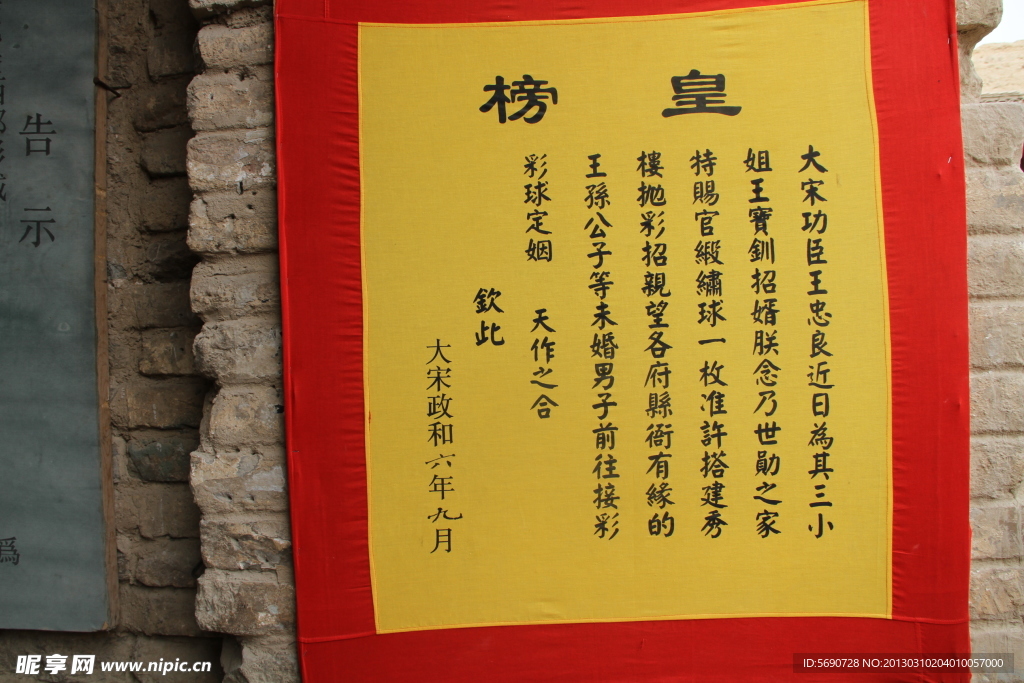 皇榜
大宋功臣王忠良近日為其三小
姐王寶釧招婿朕念乃世勛之家
特賜官緞繡球一枚准許搭建秀
樓抛彩招親望各府縣衙有緣的
王孫公子等未婚男子前往接彩
彩球定姻 天作之合
欽此
大宋政和六年九月
告示
爲
昵享网 www.nipic.cn
ID:5690728 NO:20130310204010057000